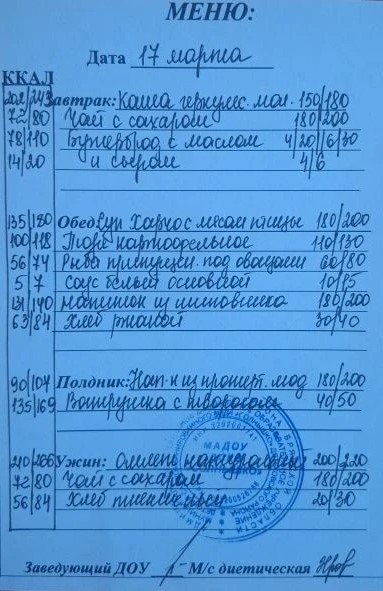 МЕНЮ:
Дата 17 марта
ККАЛ
202/243 Завтрак: Каша геркулес. мол. 150/180
72/80 Чай с сахаром 180/200
78/110 Бутерброд с маслом 4/20//6/30
14/20 и сыром 4/6
135/180 Обед: Суп Харчо с мясом птицы 180/200
100/118 Пюре картофельное 110/130
56/74 Рыба припущен. под овощами 60/80
5/7 Соус белый основной 10/15
131/140 напиток из шиповника 180/200
63/84 Хлеб ржаной 30/40
90/107 Полдник: Нап-к из протерт. ягод 180/200
135/169 Ватрушка с творогом 40/50
240/266 Ужин: Омлет натуральный 200/220
72/80 Чай с сахаром 180/200
56/84 Хлеб пшеничный 20/30
МАДОУ
Заведующий ДОУ М/с диетическая